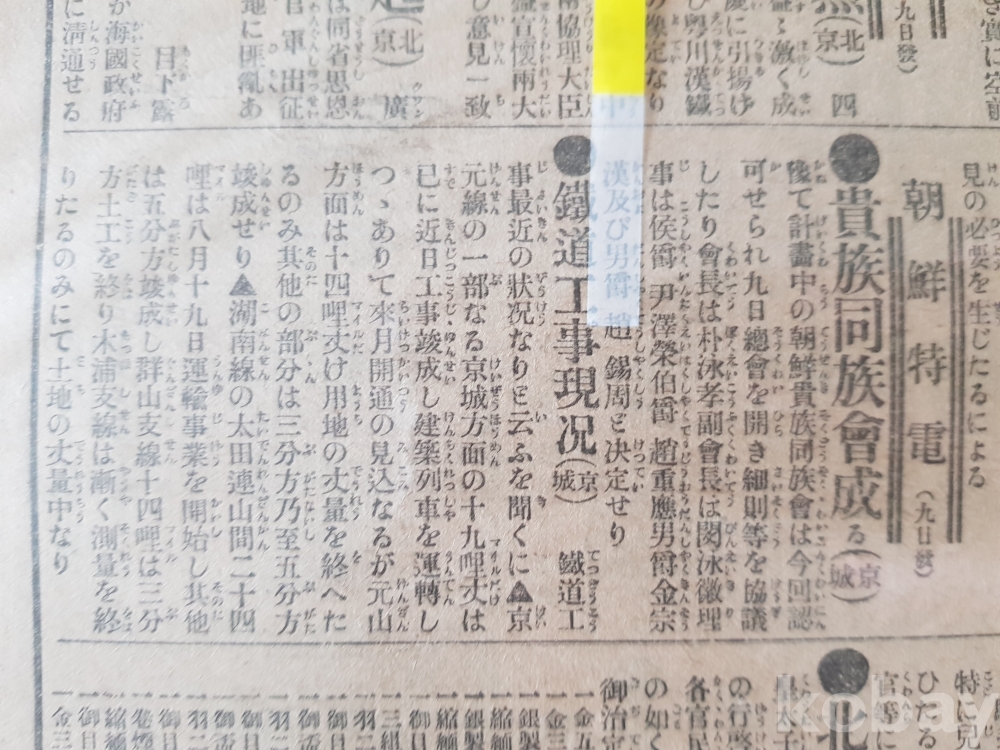 見の必要を生じたるによる
朝鮮特電(九日發)
●貴族同族會成る(京城)
豫て計畫中の朝鮮貴族同族會は今回認
可せられ九日總會を開き細則等を協議
したり會長は朴泳孝副會長は閔泳徽理
事は侯爵 尹澤榮伯爵 趙重應男爵金宗
漢及び男爵 趙 錫周と決定せり
●鐵道工事現況(京城) 鐵道工
事最近の狀況なりと云ふを聞くに▲京
元線の一部なる京城方面の十九哩丈は
已に近日工事竣成し建築列車を運轉し
つゝありて來月開通の見込なるが元山
方面は十四哩丈け用地の丈量を終へた
るのみ其他の部分は三分方乃至五分方
竣成せり▲湖南線の太田連山間二十四
哩は八月十九日運輸事業を開始し其他
は五分方竣成し群山支線十四哩は三分
方土工を終り木浦支線は漸く測量を終
りたるのみにて土地の丈量中なり
九日發)
(北京) 四
激く成
慶に引揚げ
び粤川漢鐵
の豫定なり
中
協理大臣
盛宣懷兩大
し意見一致
(北京) 廣
は同省恩恩
官軍出征
地に匪亂あ
目下露
か海國政府
に淸通せる
特に兒
ひたる
官等
の行
各官民
の如く
御治定
一金五
一金三
一銀製
一縮緬
一銀製
一縮緬
一御
一三組
一羽二
一御盃
一羽二
一御
一卷煙
一縮緬
一御
一金三
kobay